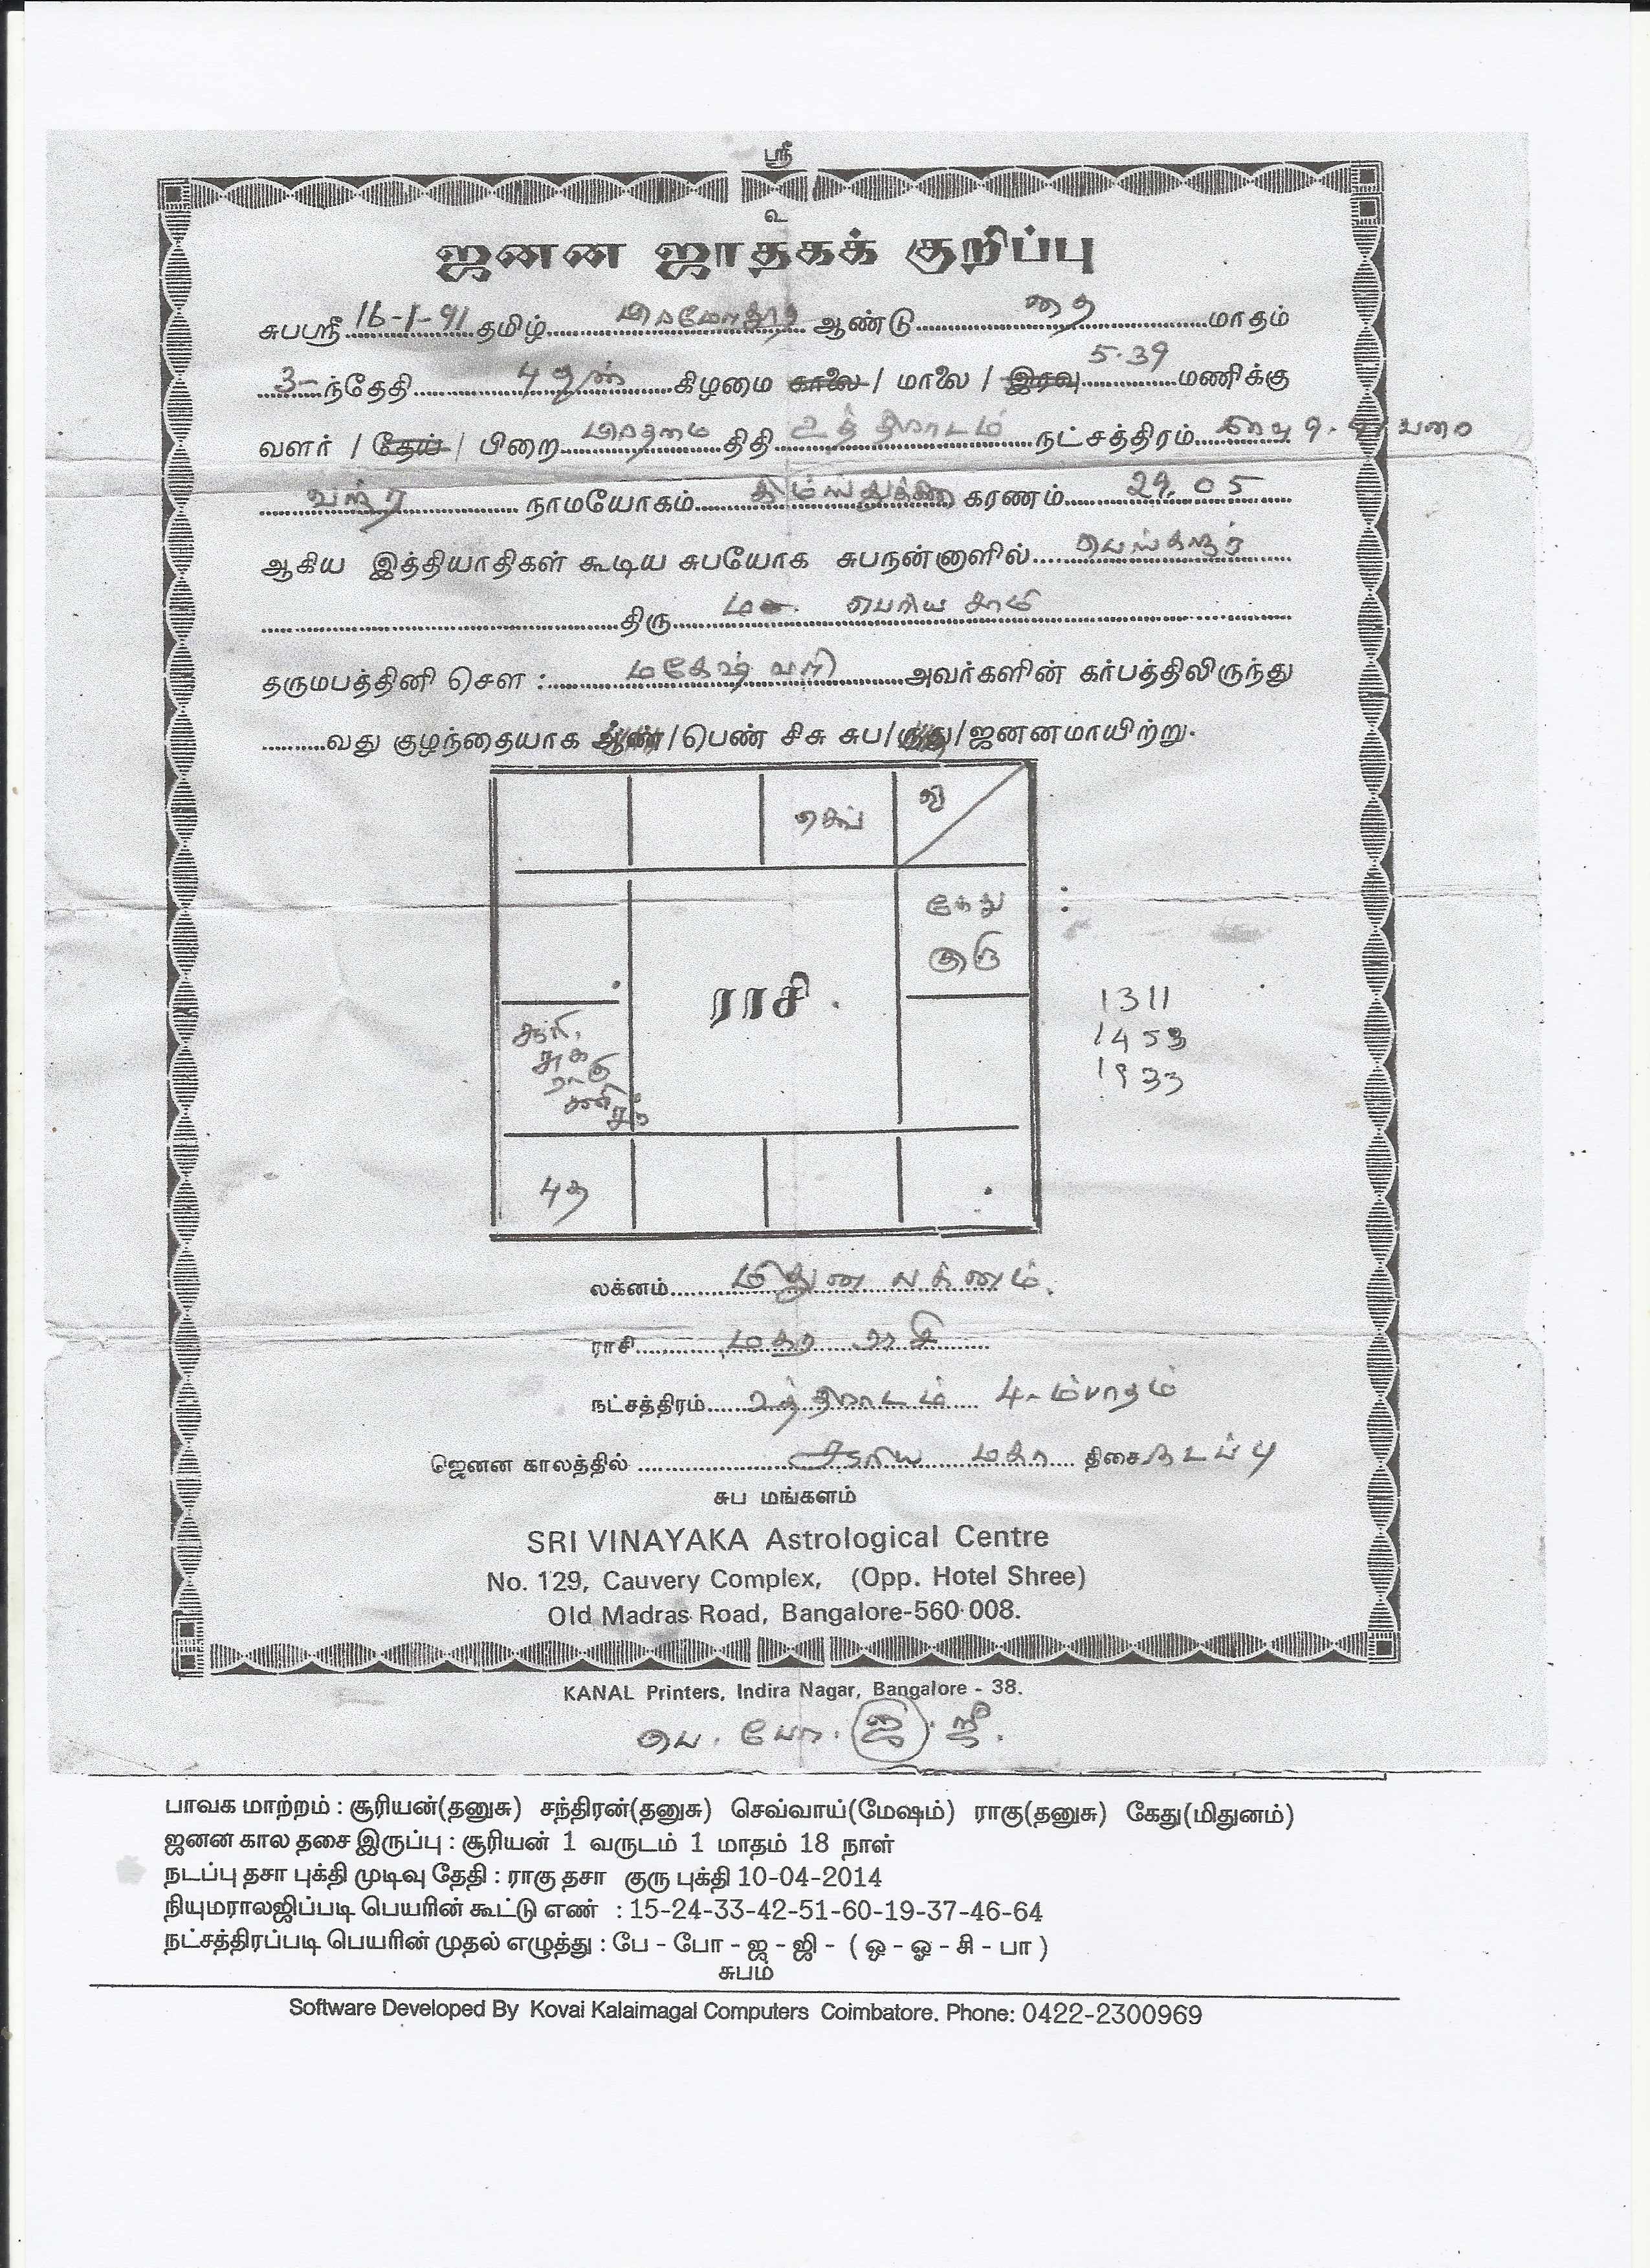 ஸ்ரீ
உ
ஜனன ஜாதகக் குறிப்பு
சுபஸ்ரீ 16-1-91 தமிழ் பிரமோதூத ஆண்டு தை மாதம்
3-ந்தேதி புதன் கிழமை காலை / மாலை / இரவு 5.39 மணிக்கு
வளர் / தேய் / பிறை பிரதமை திதி உத்திராடம் நட்சத்திரம் வரை
வஜ்ர நாமயோகம் கரணம் 29.05
ஆகிய இத்தியாதிகள் கூடிய சுபயோக சுபநன்னாளில் பெங்களூர்
திரு பெரியசாமி
தருமபத்தினி சௌ : மகேஷ்வரி அவர்களின் கர்பத்திலிருந்து
வது குழந்தையாக ஆண்/பெண் சிசு சுப/ருது/ஜனனமாயிற்று.
செவ் ல
கேது
குரு
ராசி
சூரி,
சுக்
ராகு
சனி
சந்
1311
1453
1933
புத
லக்னம் மிதுன லக்னம்.
ராசி மகர ராசி
நட்சத்திரம் உத்திராடம் 4-ம்பாதம்
ஜெனன காலத்தில் சூரிய மகா திசை நடப்பு
சுப மங்களம்
SRI VINAYAKA Astrological Centre
No. 129, Cauvery Complex, (Opp. Hotel Shree)
Old Madras Road, Bangalore-560 008.
KANAL Printers, Indira Nagar, Bangalore - 38.
பே. போ. ஜ. ஜீ.
பாவக மாற்றம் : சூரியன்(தனுசு) சந்திரன்(தனுசு) செவ்வாய்(மேஷம்) ராகு(தனுசு) கேது(மிதுனம்)
ஜனன கால தசை இருப்பு : சூரியன் 1 வருடம் 1 மாதம் 18 நாள்
நடப்பு தசா புக்தி முடிவு தேதி : ராகு தசா குரு புக்தி 10-04-2014
நியுமராலஜிப்படி பெயரின் கூட்டு எண் : 15-24-33-42-51-60-19-37-46-64
நட்சத்திரப்படி பெயரின் முதல் எழுத்து : பே - போ - ஜ - ஜி - ( ஒ - ஓ - சி - பா )
சுபம்
Software Developed By Kovai Kalaimagal Computers Coimbatore. Phone: 0422-2300969